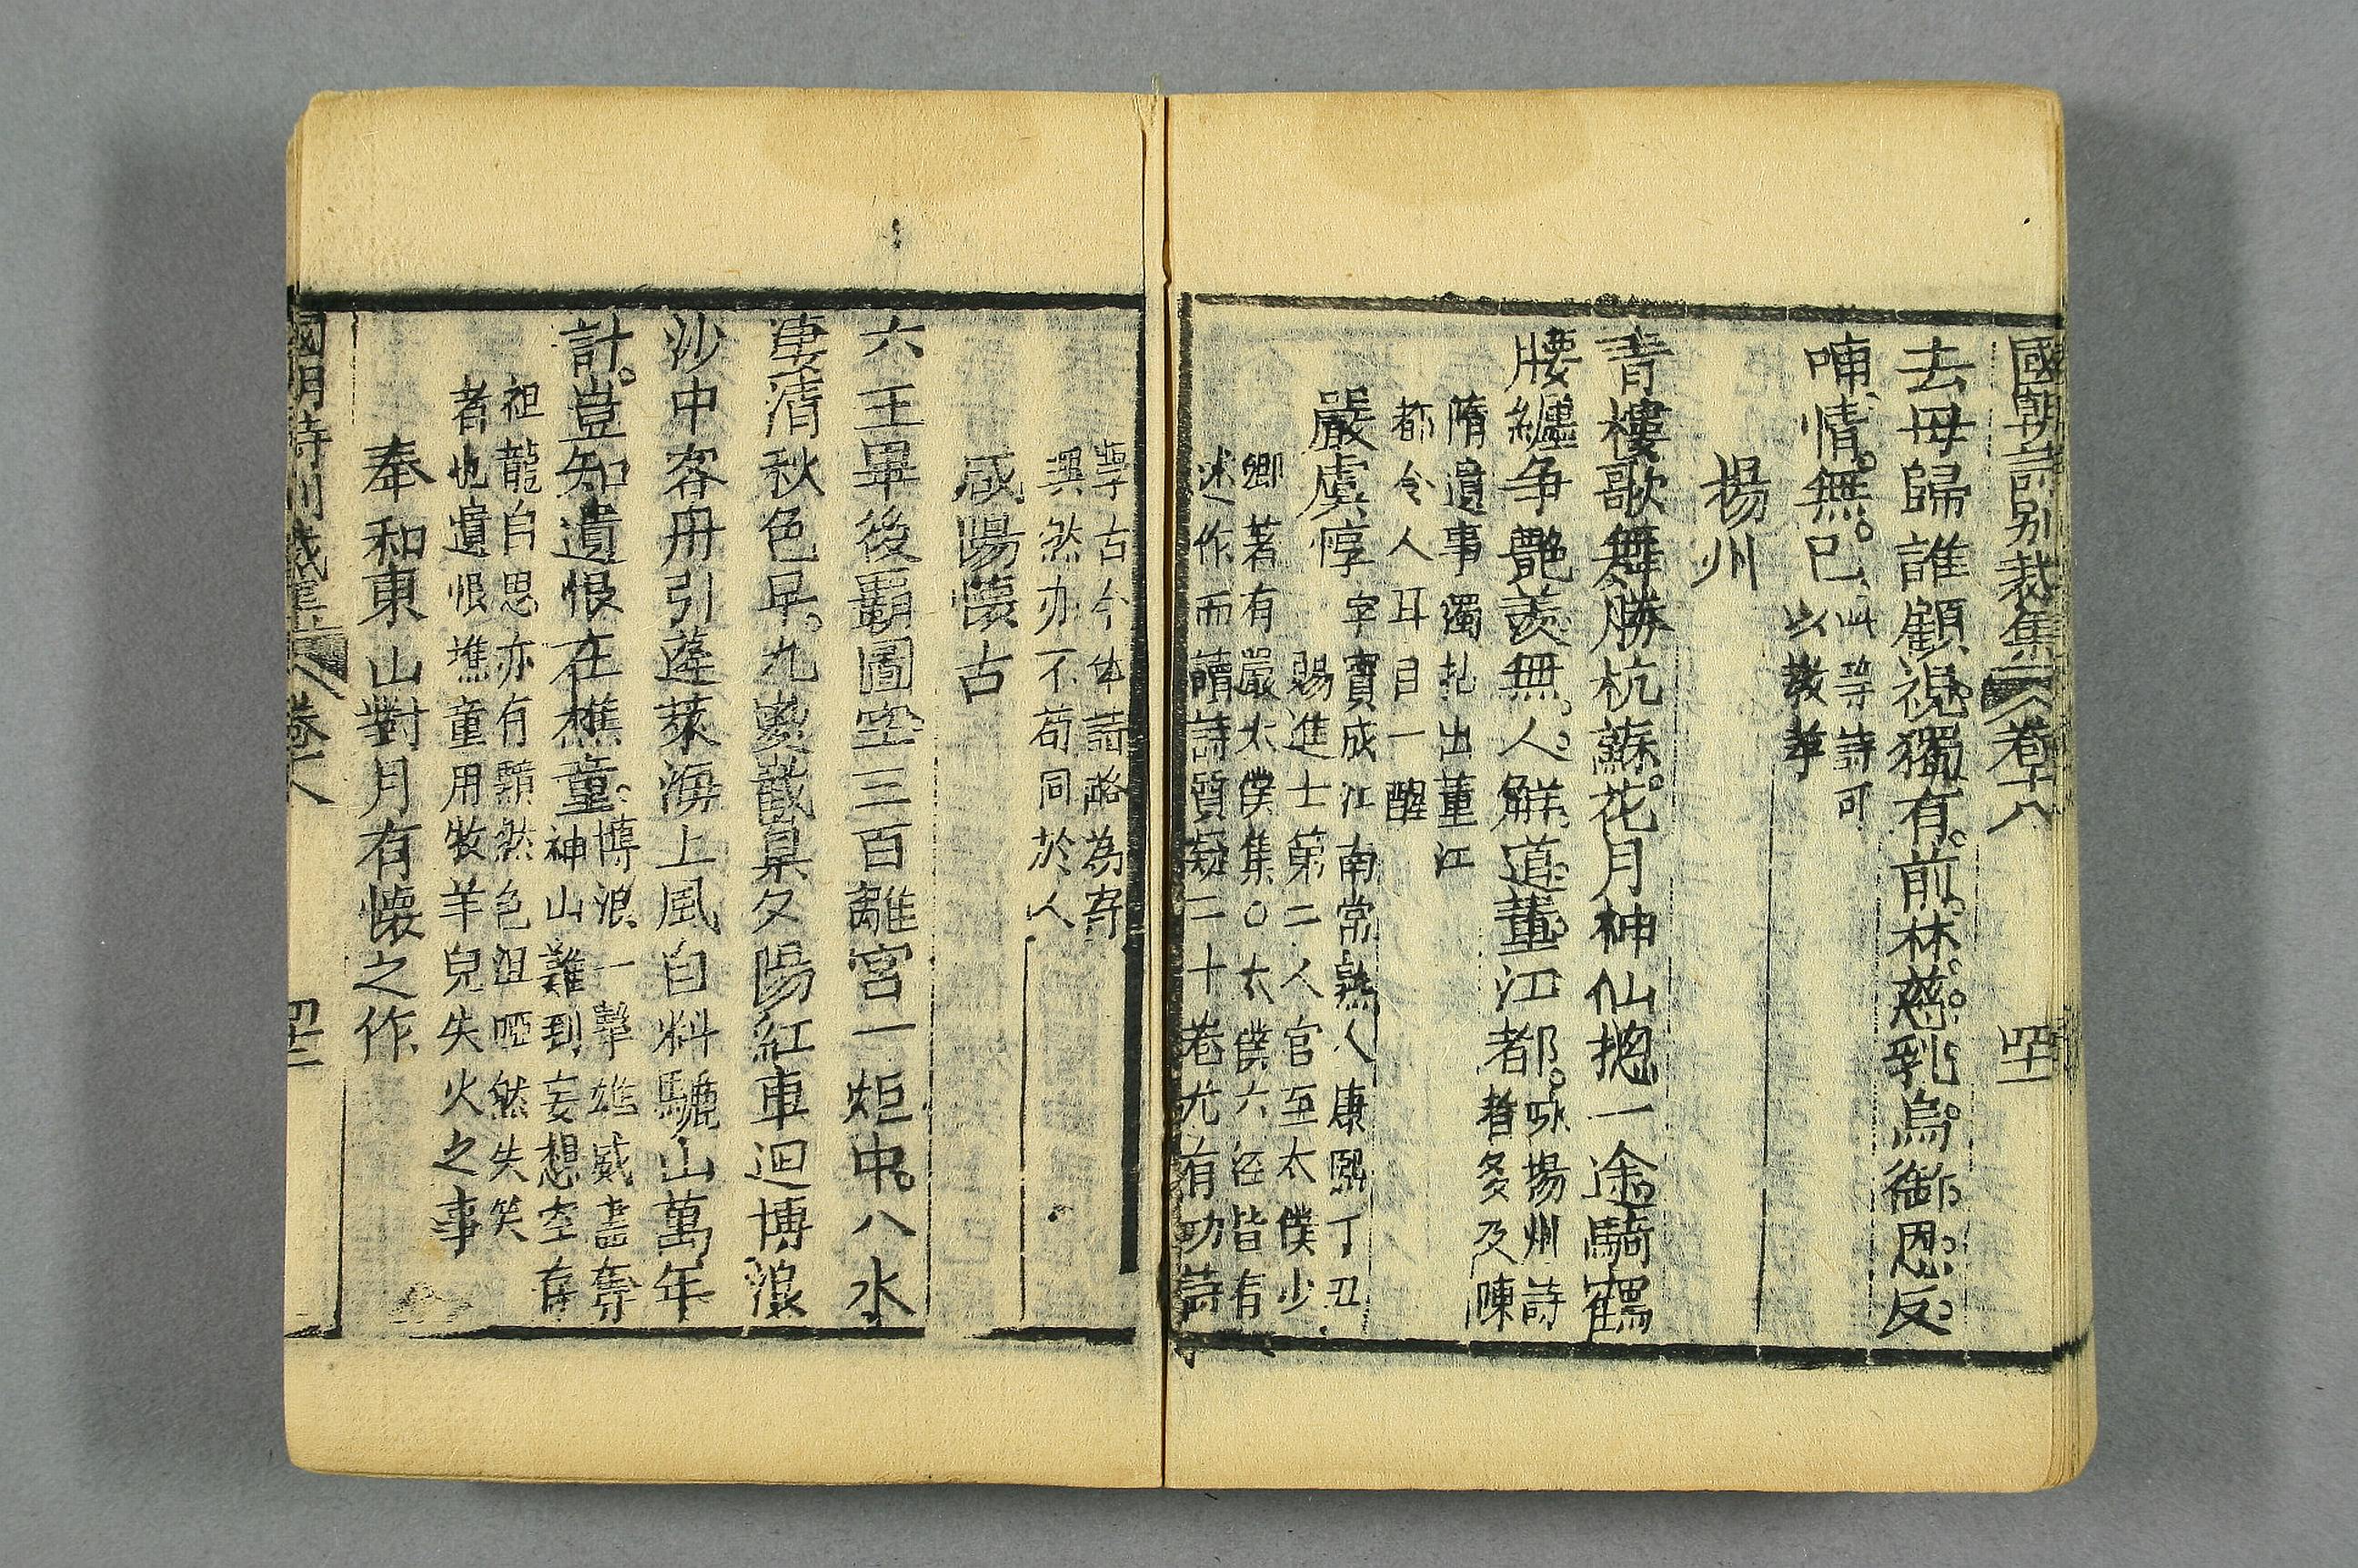 國朝詩別裁集 卷十八 四十一
去母歸誰顧視獨有前林慈乳烏銜恩反
哺情無已
此等詩可
以教孝
揚州
青樓歌舞勝杭蘇花月神仙摠一途騎鶴
腰纏争艷羨無人解道董江都
咏揚州詩
者多及陳
隋遺事獨拈出董江
都令人耳目一醒
嚴虞惇
字寶成江南常熟人康熙丁丑
賜進士第二人官至太僕少
卿著有嚴太僕集○太僕六經皆有
述作而讀詩質疑二十卷尤有功詩
學古今体詩略為寄
興然亦不苟同於人
咸陽懷古
六王畢後霸圖空三百離宮一炬中八水
凄清秋色早九㚇嶻嵲夕陽紅車迴博浪
沙中客舟引蓬萊海上風自料驪山萬年
計豈知遺恨在樵童
博浪一擊雄威盡奪
神山難到妄想空存
祖龍白思亦有顭然色沮啞然失笑
者也遺恨樵童用牧羊兒失火之事
奉和東山對月有懷之作
國朝詩別裁集 卷十八 四十二